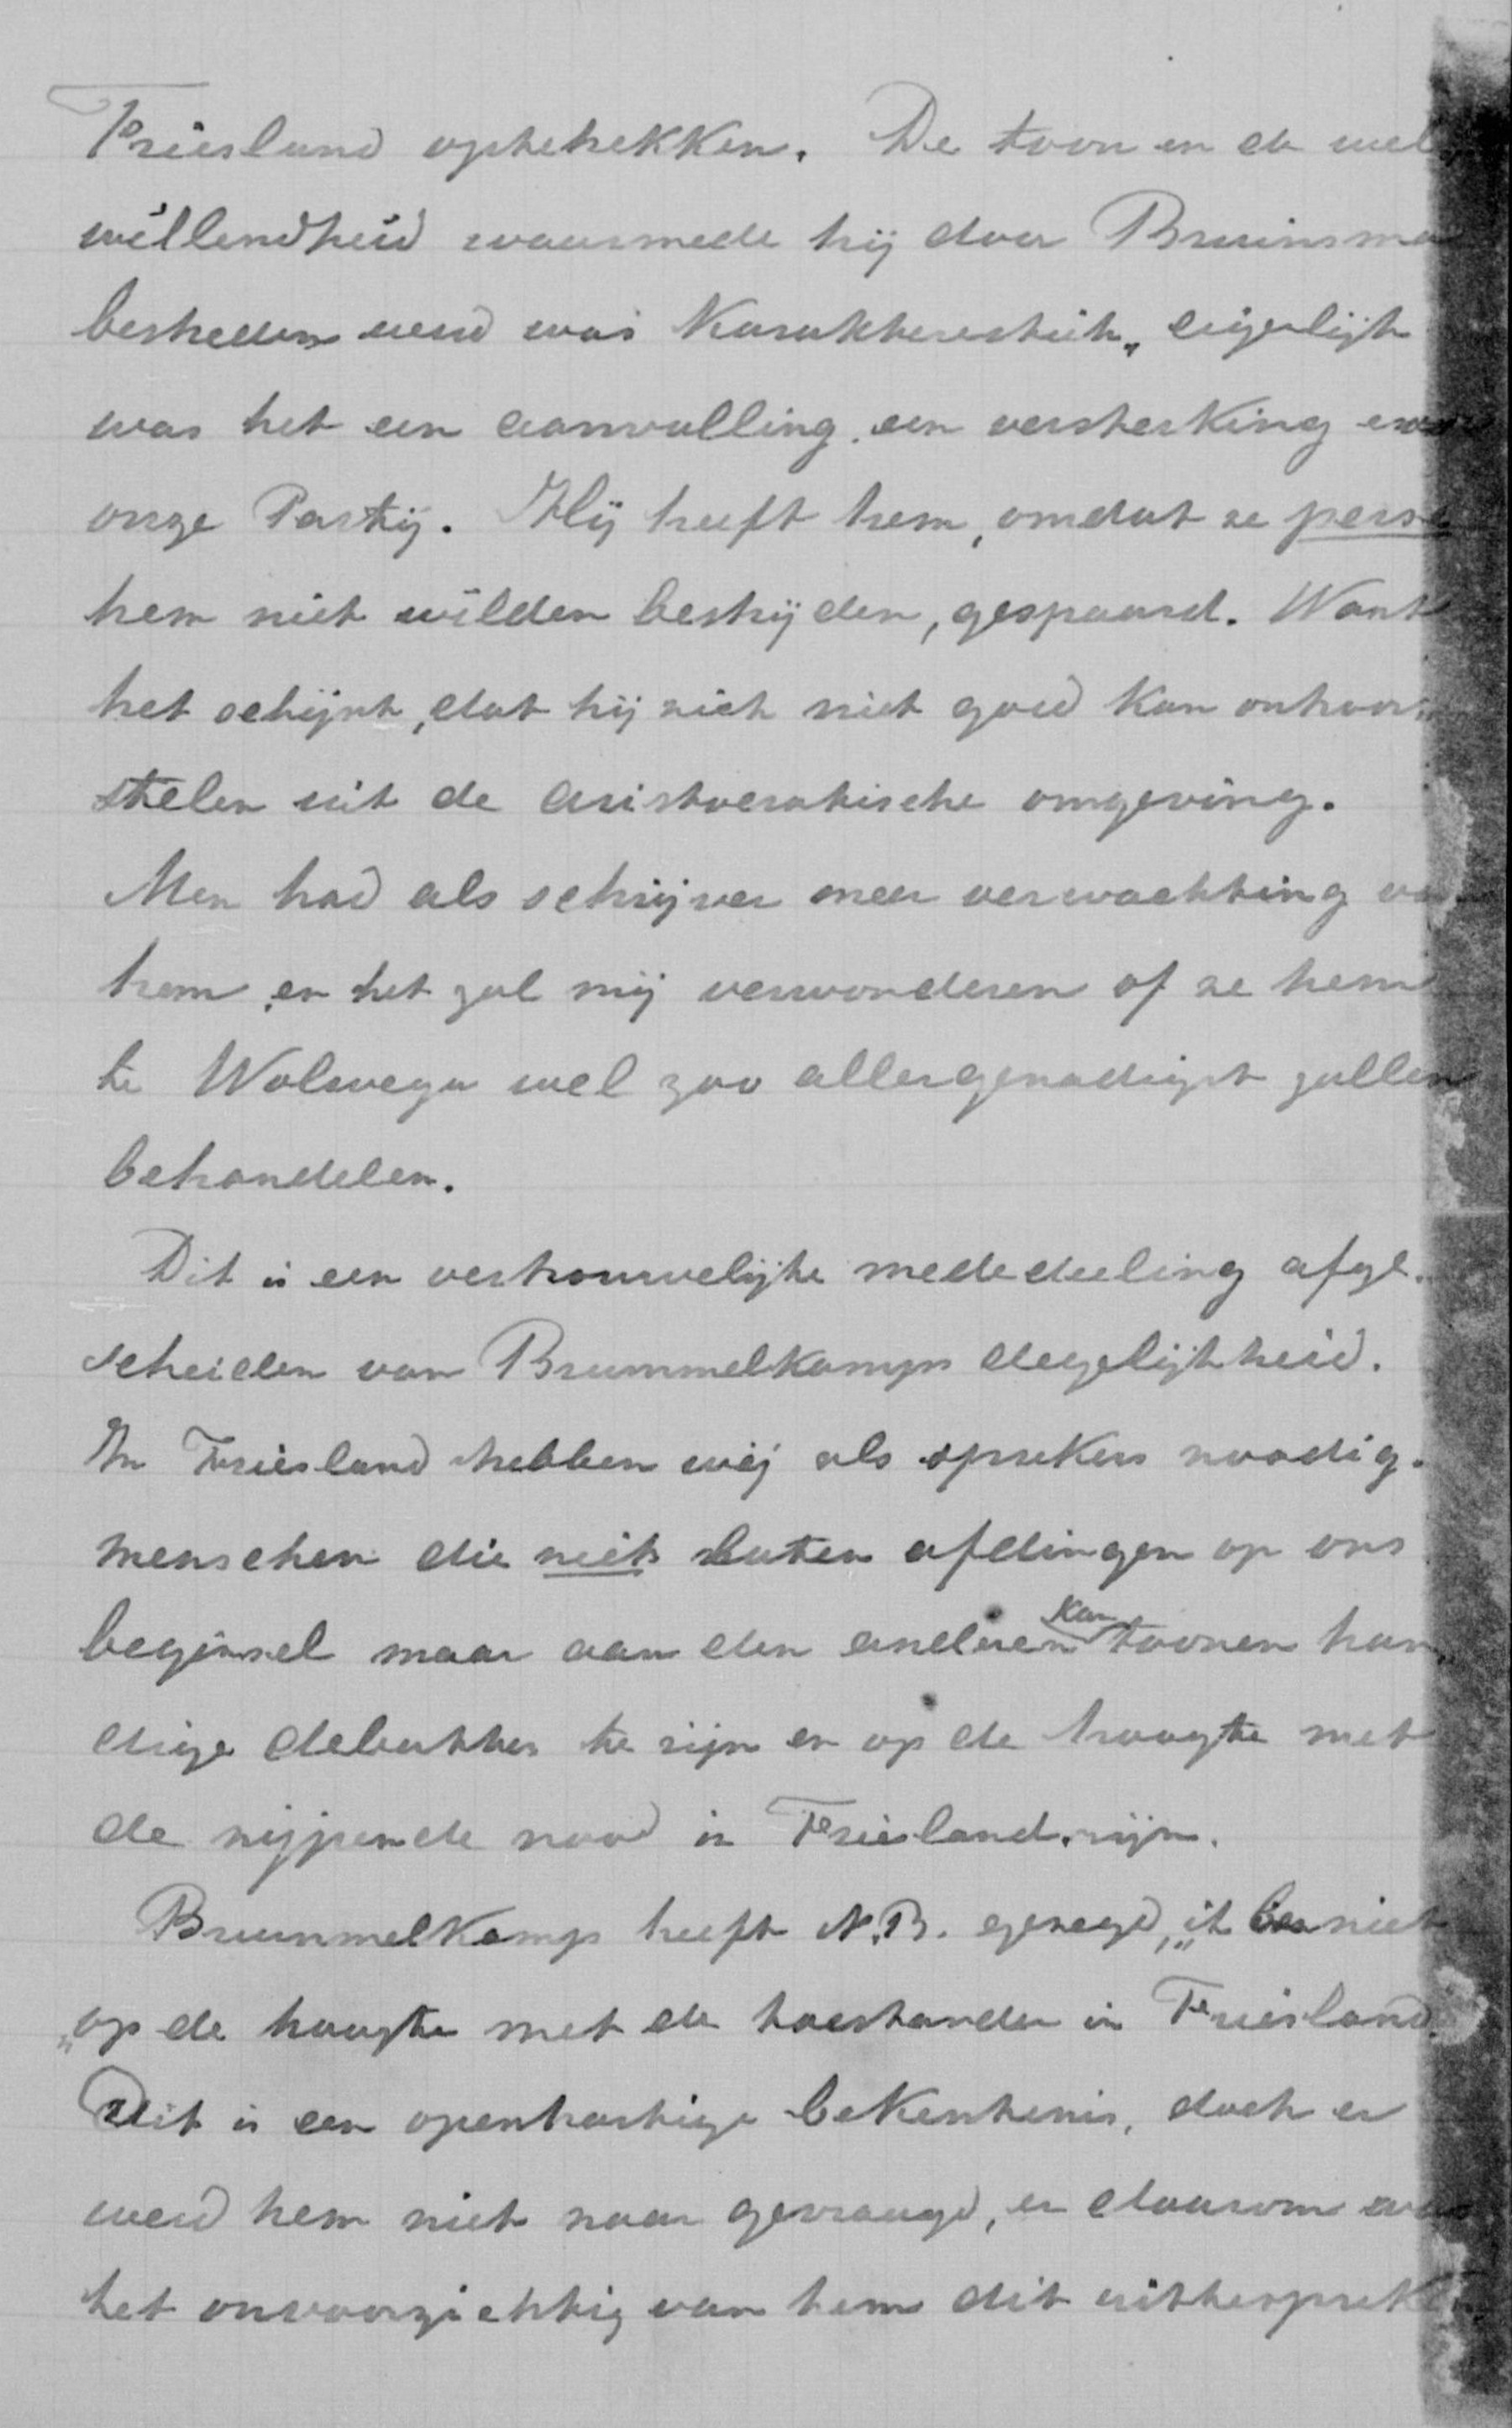 Friesland optetrekken. De toon en de wel
willendheid waarmede hij door Bruinsma
bestreden werd was Karakteristiek, eigenlijk
was het een aanvulling, een versterking
onze Partij. Hij heeft hem, omdat ze pers
hem niet wilden bestrijden, gespaard. Want
het schijnt, dat hij zich niet goed kan ontwor
stelen uit de aristocratische omgeving.
Men had als schrijver meer verwachting va
hem, en het zal mij verwonderen of ze hem
te Wolvega wel zoo allergenadigst zullen
behandelen.
Dit is een vertrouwelijke mededeeling afge-
scheiden van Brummelkamps degelijkheid.
In Friesland hebben wij als sprekers noodig.
menschen die niets laten afdingen op ons
beginsel maar aan den anderen Kan toonen han
dige debatter te zijn en op de hoogte met
de nijpende nood in Friesland zijn.
Brummelkamp heeft N.B. gezegd, „ik ben niet
„op de hoogte met de toestanden in Friesland
Dit is een openhartige bekentenis, doch er
werd hem niet naar gevraagd, en daarom was
het onvoorzichtig van hem dit uittespreken